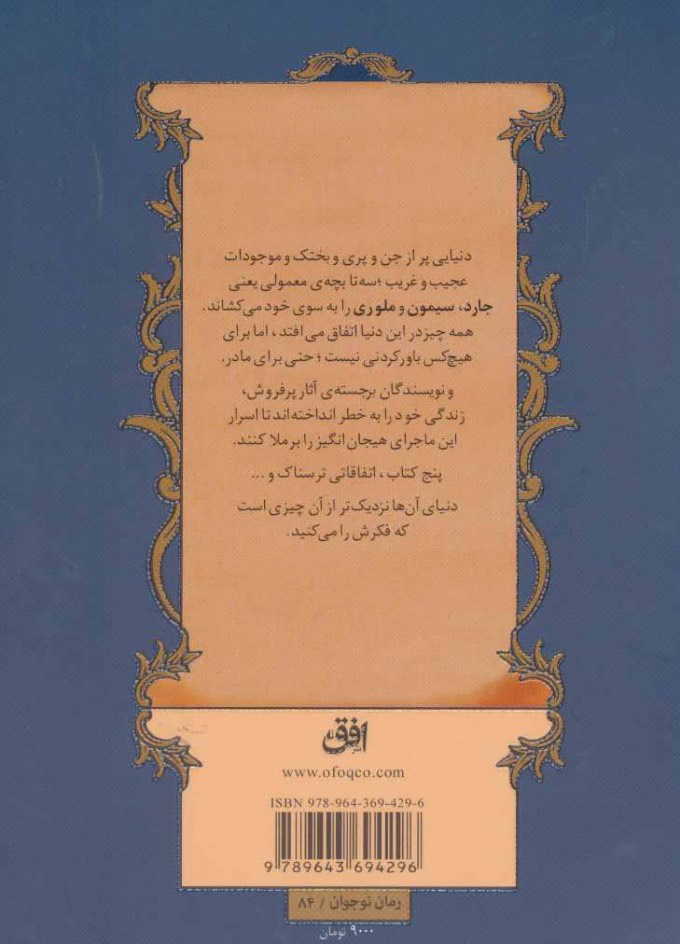 دنیایی پر از جن و پری و بختک و موجودات
عجیب و غریب ؛سه تا بچه‌ی معمولی یعنی
جارد، سیمون و ملوری را به سوی خود می‌کشاند.
همه چیز در این دنیا اتفاق می‌افتد ، اما برای
هیچ‌کس باورکردنی نیست ؛ حتی برای مادر.
و نویسندگان برجسته‌ی آثار پرفروش،
زندگی خود را به خطر انداخته‌اند تا اسرار
این ماجرای هیجان‌انگیز را برملا کنند.
پنج کتاب ، اتفاقاتی ترسناک و ...
دنیای آن‌ها نزدیک‌تر از آن چیزی است
که فکرش را می‌کنید.
افق
www.ofoqco.com
ISBN 978-964-369-429-6
9 789643 694296
رمان نوجوان / ۸۴
۹۰۰۰ تومان